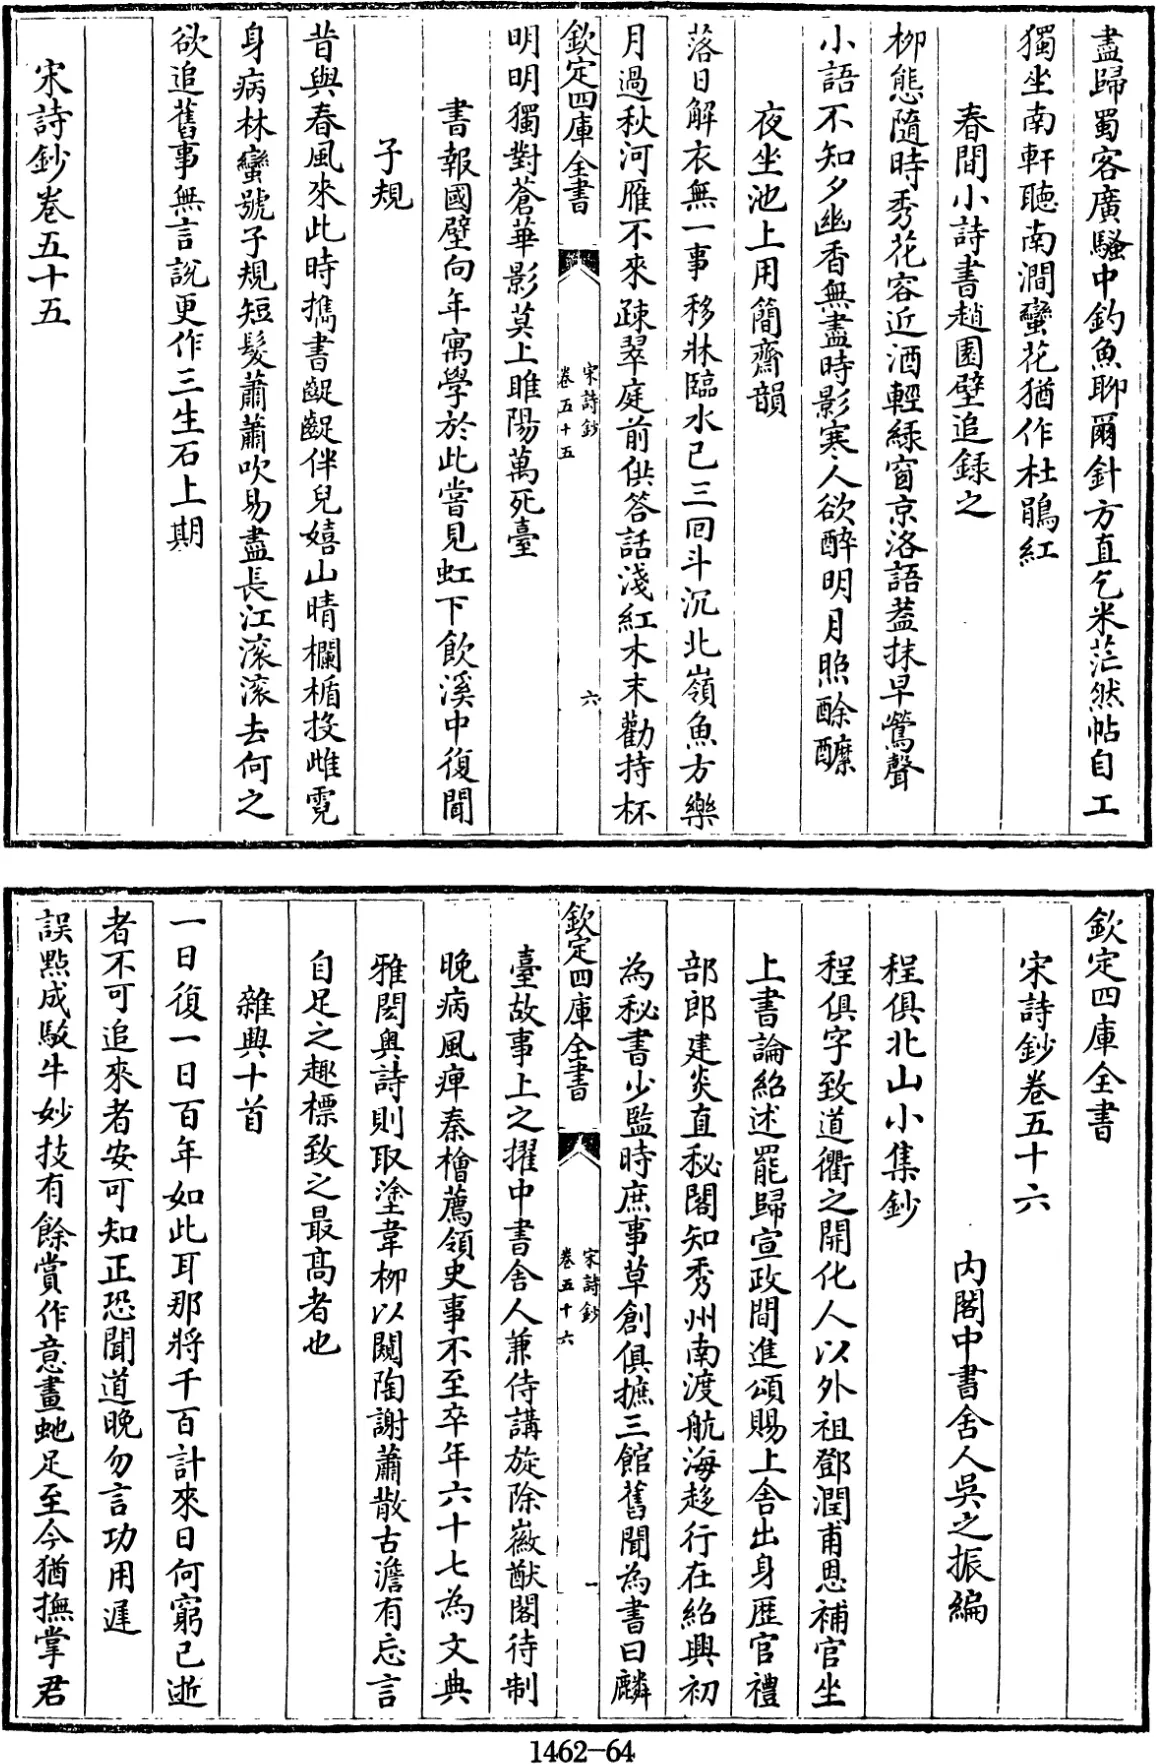 盡歸蜀客廣騷中釣魚聊爾針方直乞米茫然帖自工
獨坐南軒聽南澗蠻花猶作杜鵑紅
春間小詩書趙園壁追録之
柳態隨時秀花容近酒輕緑窗京洛語葢抹早鶯聲
小語不知夕幽香無盡時影寒人欲醉明月照酴醾
夜坐池上用簡齋韻
落日解衣無一事移牀臨水已三回斗沉北嶺魚方樂
月過秋河雁不來疎翠庭前供答話淺紅木末勸持杯
欽定四庫全書
宋詩鈔
卷五十五
六
明明獨對蒼華影莫上睢陽萬死臺
書報國壁向年寓學於此嘗見虹下飲溪中復聞
子規
昔與春風來此時擕書齪齪伴兒嬉山晴欄楯投雌霓
身病林蠻號子規短髮蕭蕭吹易盡長江滚滚去何之
欲追舊事無言説更作三生石上期
宋詩鈔卷五十五
欽定四庫全書
宋詩鈔卷五十六
内閣中書舍人吳之振編
程俱北山小集鈔
程俱字致道衢之開化人以外祖鄧潤甫恩補官坐
上書論紹述罷歸宣政間進頌賜上舍出身歴官禮
部郎建炎直秘閣知秀州南渡航海趍行在紹興初
為秘書少監時庶事草創俱摭三館舊聞為書曰麟
欽定四庫全書
宋詩鈔
卷五十六
一
臺故事上之擢中書舍人兼侍講旋除徽猷閣待制
晚病風痺秦檜薦領史事不至卒年六十七為文典
雅閎奥詩則取塗韋柳以闚陶謝蕭散古澹有忘言
自足之趣標致之最髙者也
雜興十首
一日復一日百年如此耳那將千百計來日何窮已逝
者不可追來者安可知正恐聞道晚勿言功用遲
誤㸃成駮牛妙技有餘賞作意畫虵足至今猶撫掌君
1462-64